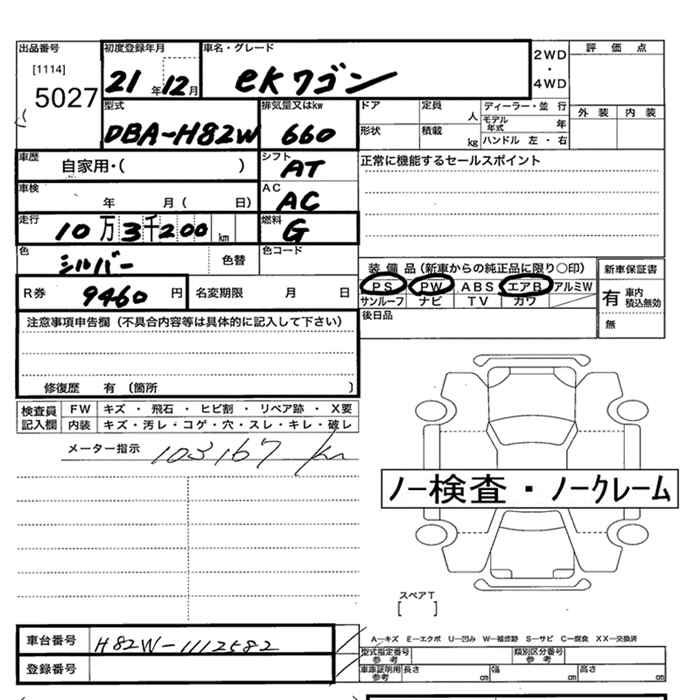 出品番号 初度登録年月 車名・グレード 2WD・4WD 評価点
[1114] 5027 21年 12月 eKワゴン
外装 内装
型式 排気量又はkw ドア 定員 人 ディーラー・並行
DBA-H82W 660 モデル年式 年
形状 積載 kg ハンドル 左・右
車歴 自家用・( ) シフト AT 正常に機能するセールスポイント
車検 年 月( 日) AC AC
走行 10万3千200km 燃料 G
色 シルバー 色替 色コード
装備品(新車からの純正品に限り○印) 新車保証書
R券 9460円 名変期限 月 日
PS PW ABS エアB アルミW 有 車内積込無効
サンルーフ ナビ TV カワ
後日品 無
注意事項申告欄(不具合内容等は具体的に記入して下さい)
修復歴 有(箇所 )
検査員記入欄 FW キズ・飛石・ヒビ割・リペア跡・X要
内装 キズ・汚レ・コゲ・穴・スレ・キレ・破レ
メーター指示 103167 km
ノー検査・ノークレーム
スペアT
[ ]
車台番号 H82W-1112582
A—キズ E—エクボ U—凹み W—補修跡 S—サビ C—腐食 XX—交換済
型式指定番号 参考 類別区分番号 参考
登録番号 車車証明用 参考 長さ cm 幅 cm 高さ cm